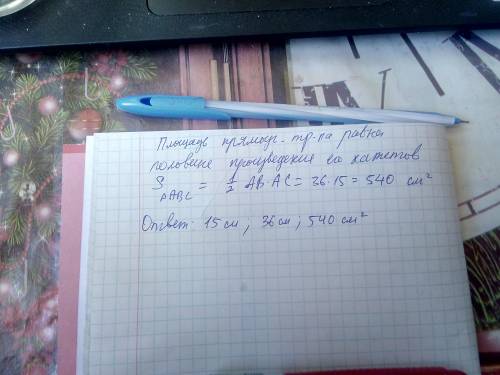 Площадь прямоуг. тр-ка равна
половине произведения его катетов
S ΔABC = 1/2 AB·AC = 36·15 = 540 см²
Ответ: 15 см; 36 см; 540 см²